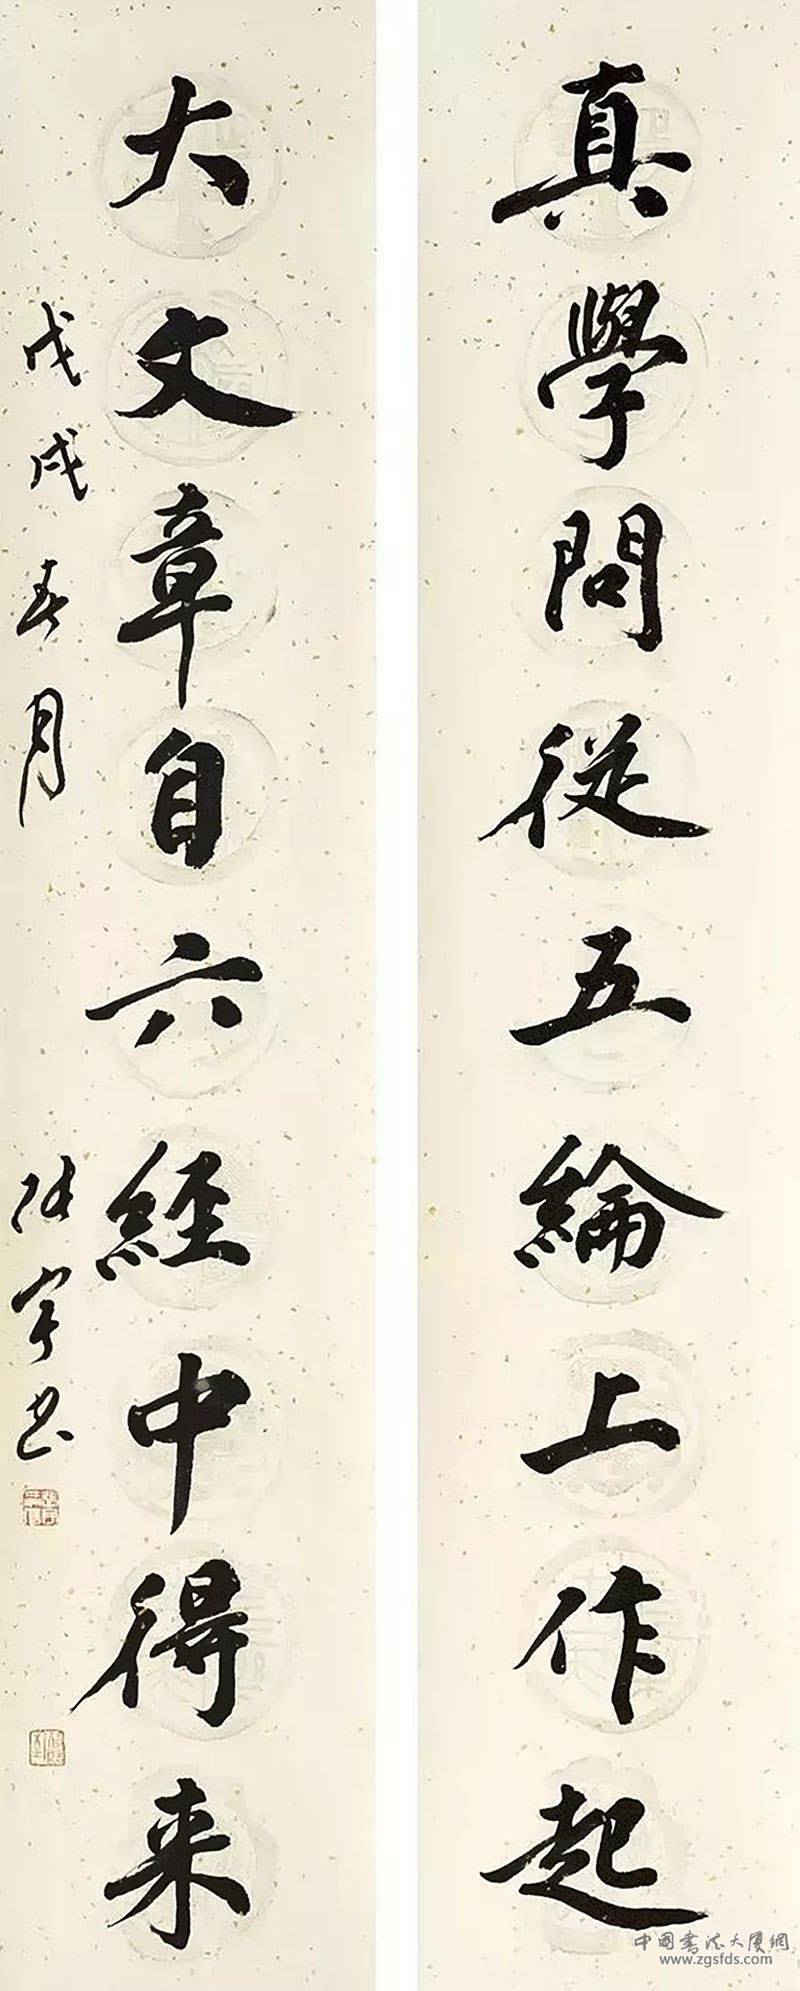 真學問從五綸上作起
大文章自六經中得来
戊戌春月
张宇书
中国书法大厦網
www.zgsfds.com